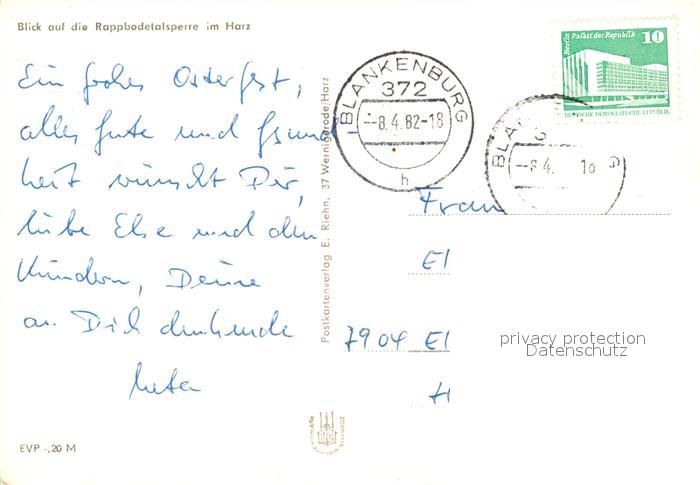 Blick auf die Rappbodetalsperre im Harz
Ein frohes Osterfest,
alles Gute und Gesund-
heit wünscht Dir,
liebe Else und den
Kindern, Deine
an Dich denkende
EVP -,20 M
Postkartenverlag E. Riehn, 37 Wernigerode/Harz
BLANKENBURG
372
--8.4.82-18
h
Berlin Palast der Republik
10
DEUTSCHE DEMOKRATISCHE REPUBLIK
BLAN
--8.4. 18
G
Frau
El
7904 El
privacy protection
Datenschutz